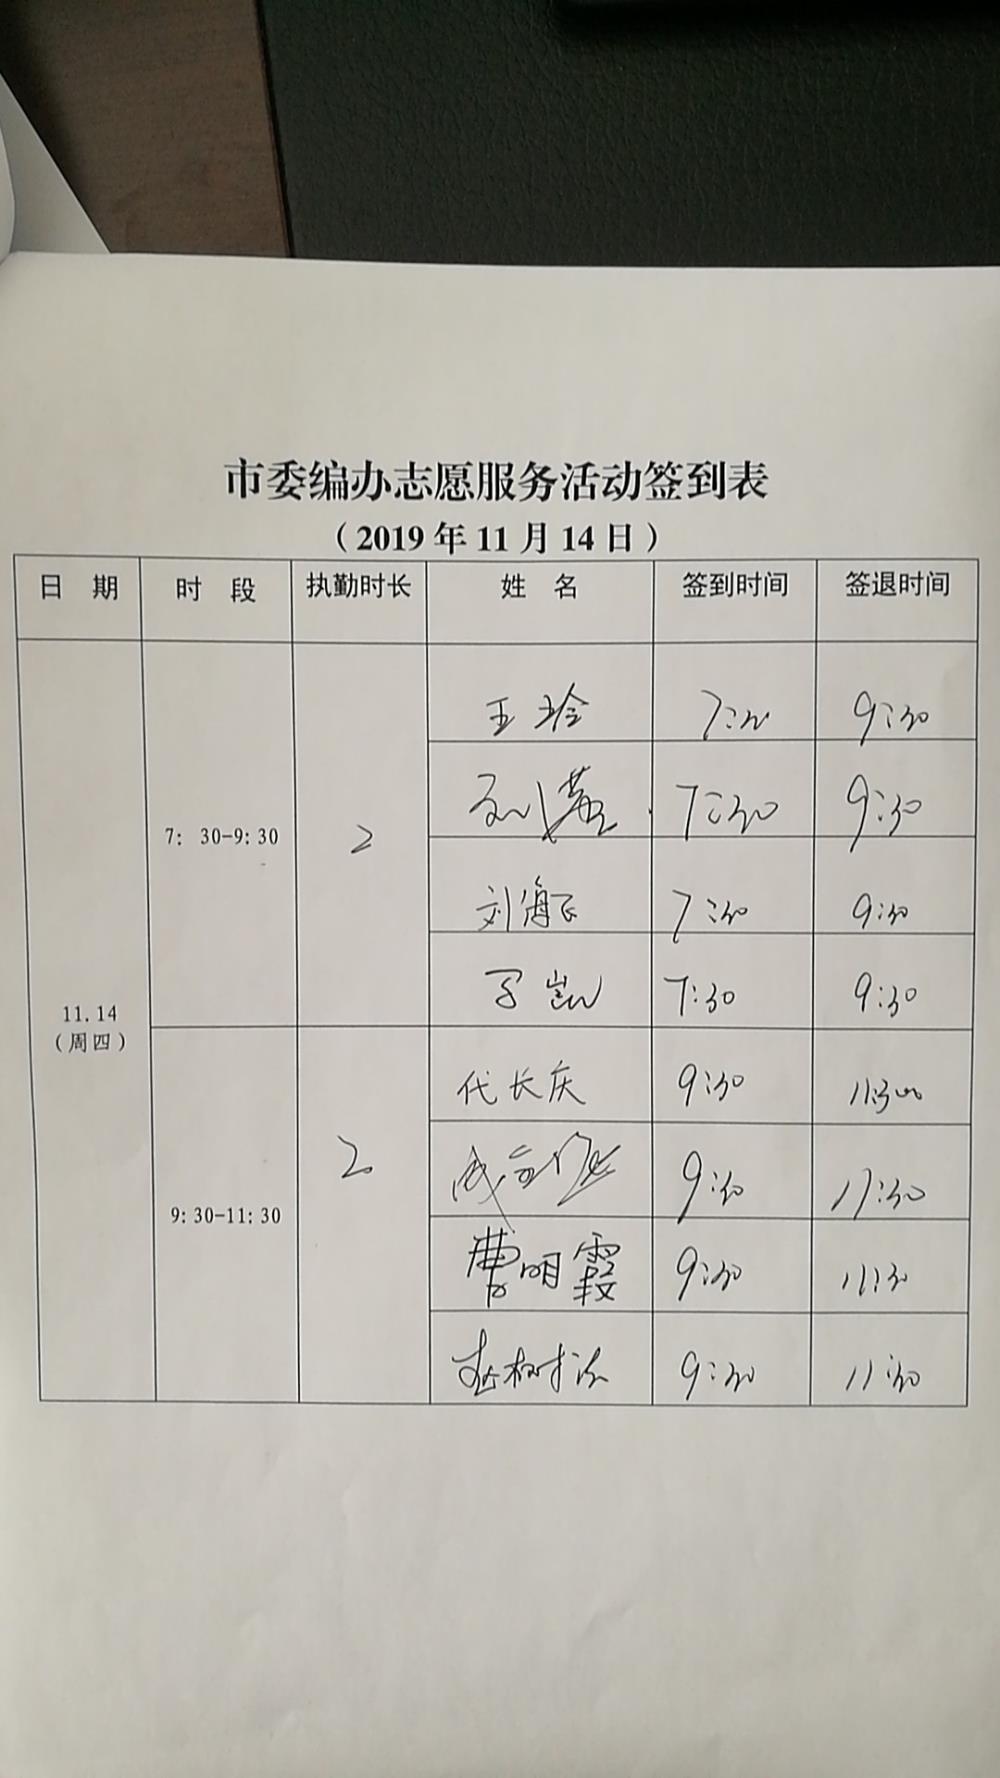 市委编办志愿服务活动签到表
（2019年11月14日）
日 期 时 段 执勤时长 姓 名 签到时间 签退时间
王玲 7:30 9:30
7:30 9:30
7: 30-9:30 2
刘海飞 7:30 9:30
7:30 9:30
11.14
（周四）
代长庆 9:30 11:30
2 9:30 11:30
9:30-11:30
曹明霞 9:30 11:30
9:30 11:30